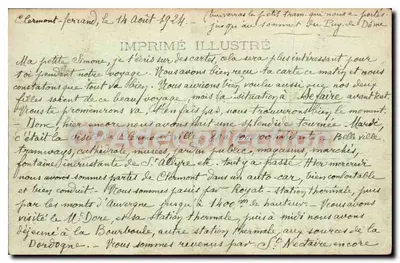 Clermont-ferrand, le 14 Août 1924. - Tu verras le petit tram qui nous a portés
jusqu'au sommet du Puy de Dôme
IMPRIMÉ ILLUSTRÉ
Ma petite Simone, je t'écris sur des cartes, cela sera plus intéressant pour
toi pendant notre voyage. Nous avons bien reçu ta carte ce matin et nous
constatons que tout va bien. Nous aurions bien voulu aussi que nos deux
filles soient de ce beau voyage, mais la situation à se faire avant tout.
Nous te promènerons va, n'en fais pas, nous trouverons bien le moment.
Donc hier encore nous avons fait une splendide tournée. Mardi,
c'était la visite
tramways, cathédrale, musée, jardin public, magasins, marchés,
fontaine incrustante de St Alyre etc. tout y a passé. Hier mercredi
nous avons sommes partis de Clermont dans un auto-car, bien confortable
et bien conduit. Nous sommes passés par Royat - station thermale, puis
par les monts d'Auvergne jusqu'à 1400 m de hauteur. Nous avons
visité le Mt Dore, et sa station thermale, puis à midi nous avons
déjeuné à la Bourboule, autre station thermale, aux sources de la
Dordogne. - Nous sommes revenus par St Nectaire encore